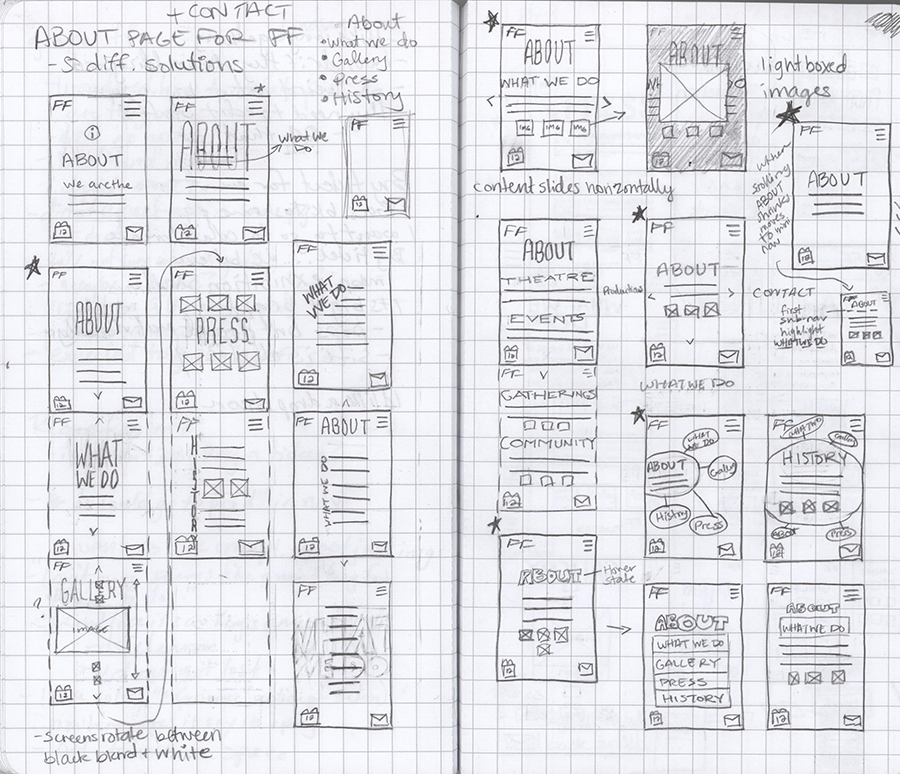 + CONTACT
ABOUT PAGE FOR FF
- 5 diff. solutions
About
• What we do
• Gallery
• Press
• History
FF
i
ABOUT
we are the
12
FF
ABOUT
12
What we
Do
FF
12
FF
ABOUT
12
FF
PRESS
12
FF
WHAT
WE DO
12
FF
WHAT
WE DO
12
FF
HISTORY
12
FF
ABOUT
WHAT WE DO
12
FF
GALLERY
IMAGE
?
12
FF
WHAT
WE DO
12
- screens rotate between
black blend + white
FF
ABOUT
WHAT WE DO
IMG IMG IMG
12
FF
ABOUT
12
lightboxed
images
content slides horizontally
FF
ABOUT
12
when
scrolling
ABOUT
shrinks
moves
to
FF
ABOUT
THEATRE
EVENTS
12
FF
GATHERINGS
COMMUNITY
12
FF
Productions
ABOUT
12
WHAT WE DO
CONTACT
first
sub-nav
highlight
WHAT WE DO
FF
ABOUT
12
FF
WHAT
WE DO
ABOUT
Gallery
History
Press
12
FF
WHAT WE DO
Gallery
HISTORY
ABOUT
Press
12
FF
ABOUT
Hover
state
12
FF
ABOUT
WHAT WE DO
GALLERY
PRESS
HISTORY
12
FF
ABOUT
WHAT WE DO
12